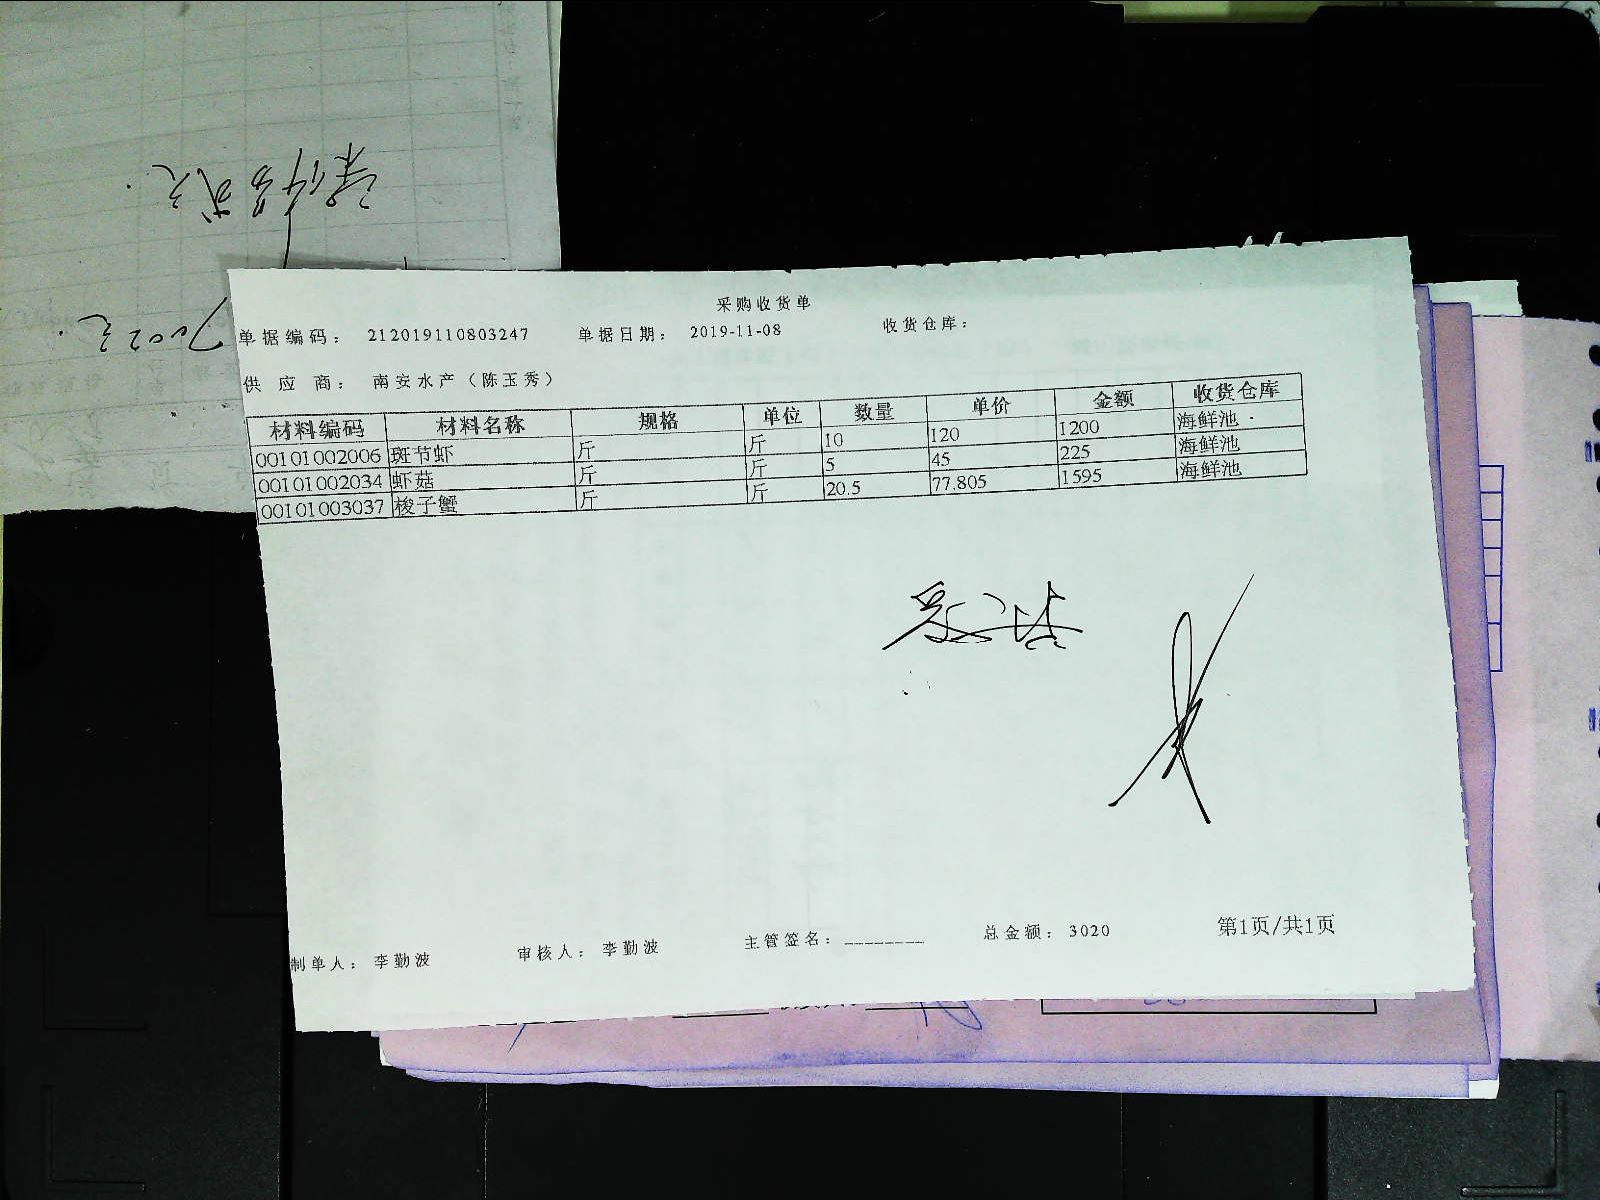 采购收货单
单据编码： 212019110803247 单据日期： 2019-11-08 收货仓库：
供 应 商： 南安水产（陈玉秀）
材料编码 材料名称 规格 单位 数量 单价 金额 收货仓库
00101002006 斑节虾 斤 斤 10 120 1200 海鲜池
00101002034 虾菇 斤 斤 5 45 225 海鲜池
00101003037 梭子蟹 斤 斤 20.5 77.805 1595 海鲜池
制单人： 李勤波 审核人： 李勤波 主管签名：________ 总金额： 3020 第1页/共1页
7002元